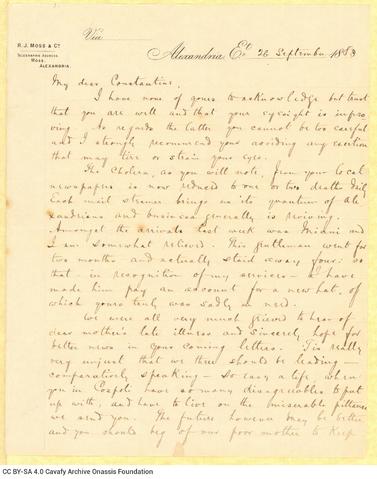 R. J. MOSS & Co.
TELEGRAPHIC ADDRESS
MOSS,
ALEXANDRIA.
Via
Alexandria, Et. 26 September 1883
My dear Constantine,
I have none of yours to acknowledge but trust
that you are well and that your eyesight is impro
ving. As regards the latter you cannot be too careful
and I strongly recommend your avoiding any exertion
that may tire or strain your eyes.
The Cholera, as you will note, from your local
newspapers is now reduced to one or two deaths daily
Each mail steamer brings us its quantum of Ale
xandrians and business generally is reviving.
Amongst the arrivals last week was Mriani and
I am somewhat relieved. This gentleman went for
two months and actually staid away four: so
that – in recognition of my services – I have
made him pay an account for a new hat, of
which yours truly was sadly in need.
We were all very much grieved to hear of
dear mother's late illness and sincerely hope for
better news in your coming letters. Tis really
very unjust that we three should be leading –
comparatively speaking – so easy a life, when
you in Cospoli have so many disagreeables to put
up with, and have to live on the miserable pittance
we send you. The future however may be better
and you should beg of our poor mother to keep
CC BY-SA 4.0 Cavafy Archive Onassis Foundation